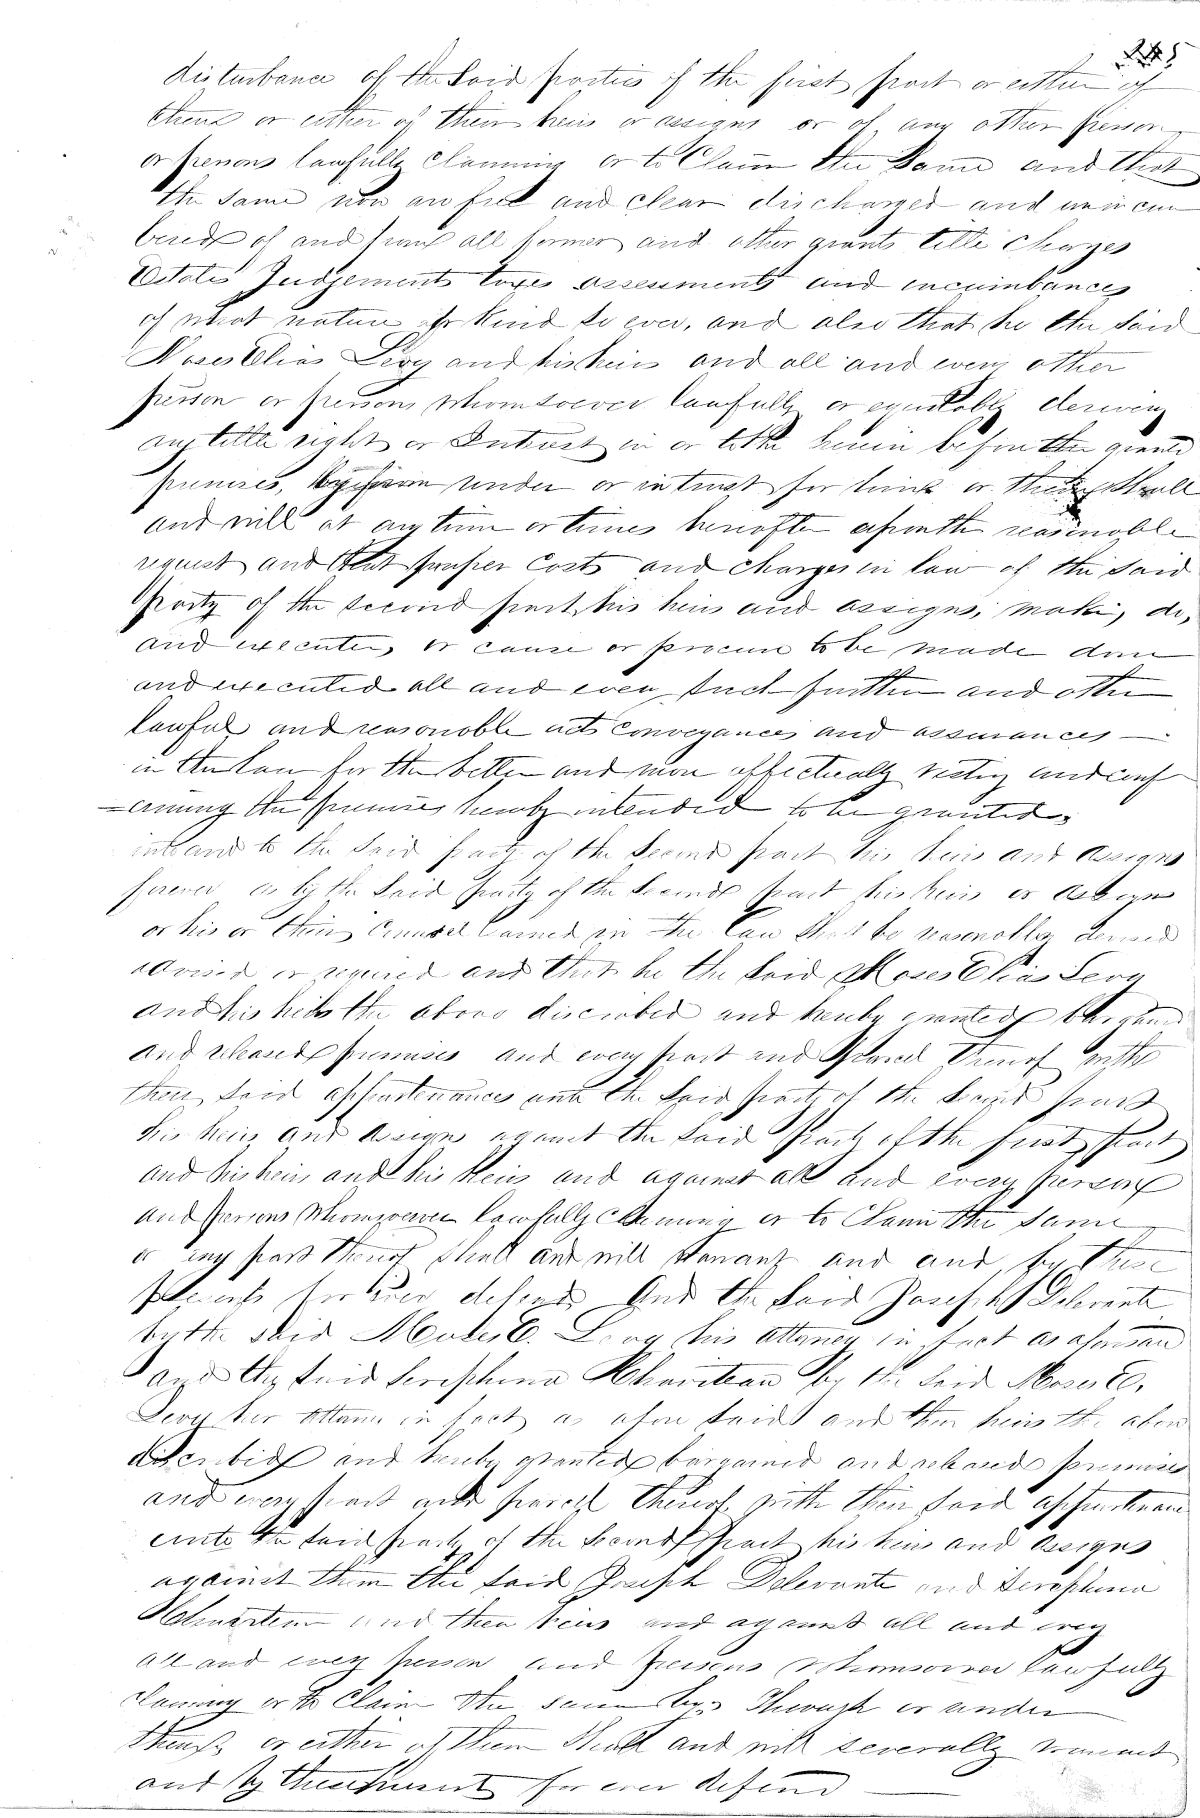 245
disturbance of the Said parties of the first part or either of
them or either of their heirs or assigns or of any other person
or persons lawfully claiming or to Claim the Same and that
the same now are free and clear discharged and unincum
bered of and from all former and other grants title charges
Estates Judgements taxes assessments and incumbances
of what nature or kind so ever, and also that he the said
Moses Elias Levy and his heirs and all and every other
person or persons whomsoever lawfully or equitably deriving
any title right or Intrest in or to the herein before the granted
premises, by from under or in trust for him or them Shall
and will at any time or times hereafter upon the reasonable
request and at proper Costs and charges in law of the said
Party of the second part, his heirs and assigns, make, do,
and execute, or cause or procure to be made done
and executed all and every Such further and other
lawful and reasonable acts conveyances and assurances —
in the law for the better and more effectually vesting and conf
=erming the premises hereby intended to be granted,
into and to the Said party of the Second part his heirs and assigns
forever, as by the Said party of the Second part his heirs or assigns
or his or their Counsel learned in the Law Shall be reasonably devised
advised or required and that he the Said Moses Elias Levy
and his heirs the above discribed and hereby granted bargained
and released premises and every part and parcel thereof with
their Said appurtenances unto the Said party of the Second part
his heirs and assigns against the Said Party of the first part
and his heirs and his Heirs and against all and every person
and persons whomsoever lawfully claiming or to Claim the same
or any part thereof Shall and will warrant and and by these
presents for ever defend. And the Said Joseph Delevante
by the said Moses E. Levy his attorney in fact as aforesaid
and the said Seraphina Chavitean by the Said Moses E.
Levy her attorney in fact as afore Said and their heirs the above
discribed and hereby granted bargained and released premises
and every part and parcel thereof with their Said appurtenance
unto the Said party of the Second part his heirs and assigns
against them the Said Joseph Delevante and Seraphina
and their heirs and against all and every
all and every person and persons whomsoever lawfully
claiming or to Claim the same by, Through or under
them, or either of them Shall and will severally warrant
and by these present for ever defend —